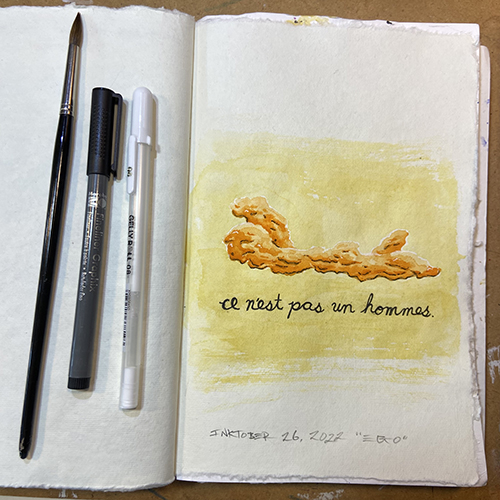 ce n'est pas un hommes.
INKTOBER 26, 2022 "EGO"
GELLY ROLL